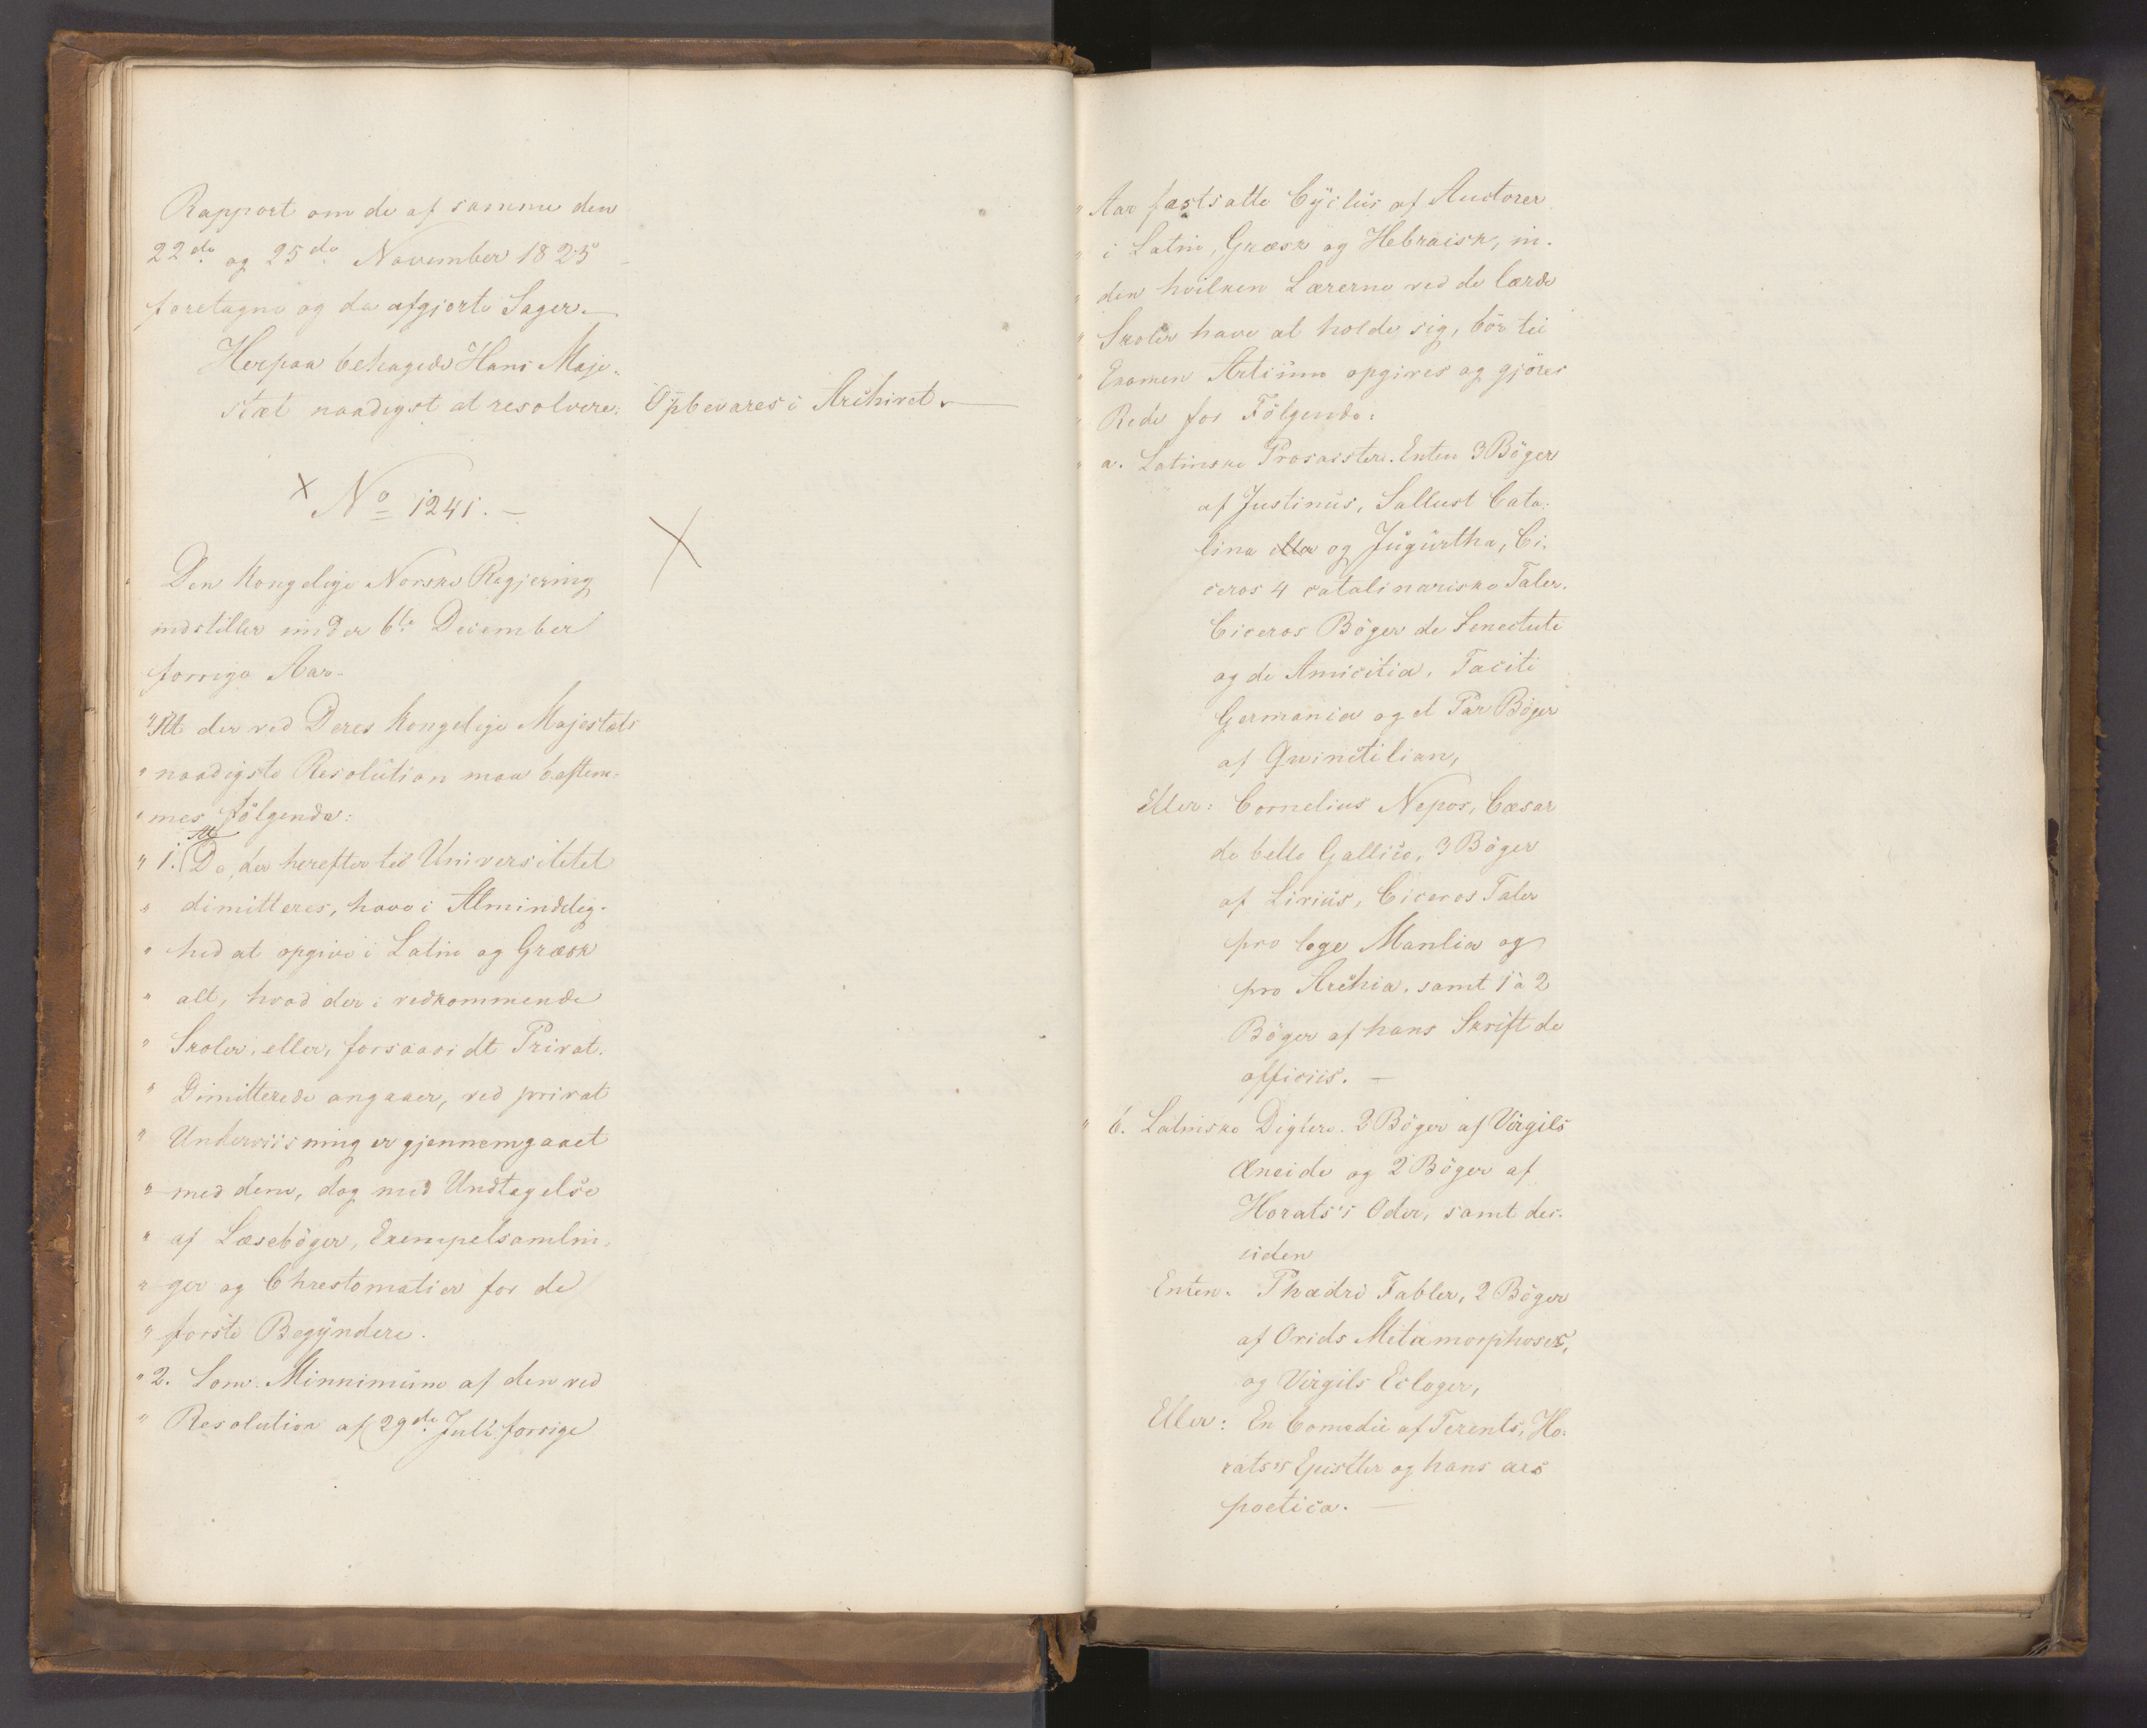 Rapport om de af samme den
22de og 25de November 1825
foretagne og da afgjorte Sager. —
Herpaa behagede Hans Maje-
stæt naadigst at resolvere: Opbevares i Archivet. —
× No 1241. —
×
Den Kongelige Norske Regjering
indstiller under 6te December
forrige Aar.
"At der ved Deres Kongelige Majestæts
" naadigste Resolution maa bestem-
" mes følgende:
At
" 1. De, der herefter til Universitetet
" dimitteres, have i Almindelig-
" hed at opgive i Latin og Græsk
" alt, hvad der i vedkommende
" Skoler, eller, forsaavidt Privat-
" Dimitterede angaaer, ved privat
" Underviisning er gjennemgaaet
" med dem, dog med Undtagelse
" af Læsebøger, Exempelsamlin-
" ger og Chrestomatier for de
" første Begyndere.
" 2. Som Minnimum af den ved
" Resolution af 29de Juli forrige
" Aar fastsatte Cyclus af Auctorer
" i Latin, Græsk og Hebraisk, in-
" den hvilken Lærerne ved de lærde
" Skoler have at holde sig, bør til
" Examen Artium opgives og gjøres
" Rede for Følgende:
" a. Latinske Prosaister. Enten 3 Bøger
af Justinus, Sallust Cata-
lina eller og Jugurtha, Ci-
ceros 4 catalinariske Taler.
Ciceros Bøger de Senectute
og de Amicitia, Taciti
Germania og et Par Bøger
af Quinctilian,
Eller: Cornelius Nepos, Cæsar
de bello Gallico, 3 Bøger
af Livius, Ciceros Taler
pro lege Manlia og
pro Archia, samt 1 à 2
Bøger af hans Skrift de
officiis. —
" b. Latinske Digtere. 3 Bøger af Virgils
Æneide og 2 Bøger af
Horats's Oder, samt des-
uden
Enten. Phædri Fabler, 2 Bøger
af Ovids Metamorphoser,
og Virgils Ecloger,
Eller: En Comedie af Terents, Ho-
rats's Epistler og hans ars
poetica. —